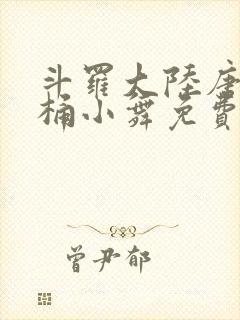 斗羅大陸唐
桶小舞免費
曾尹郁